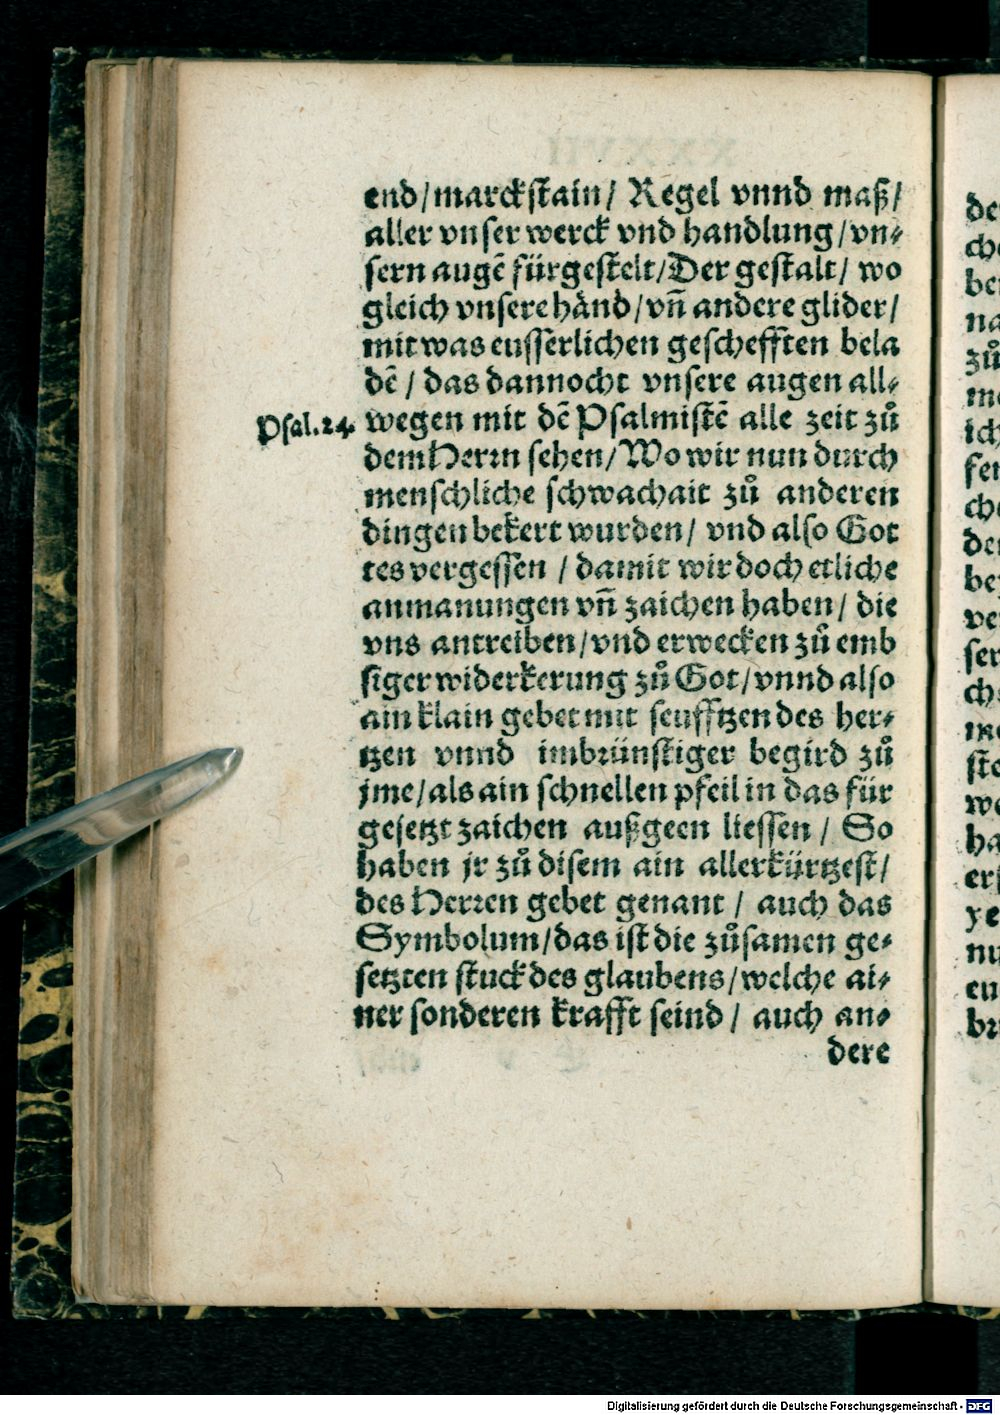 end/marckstain/ Regel vnnd maß/
aller vnser werck vnd handlung/vn⸗
sern augẽ fürgestelt/Der gestalt/ wo
gleich vnsere hånd/vñ andere glider/
mit was eusserlichen geschefften bela
dẽ / das dannocht vnsere augen all⸗
Psal.24. wegen mit dẽ Psalmistẽ alle zeit zů
dem Herꝛn sehen/Wo wir nun durch
menschliche schwachait zů anderen
dingen bekert wurden/ vnd also Got
tes vergessen / damit wir doch etliche
anmanungen vñ zaichen haben/ die
vns antreiben/vnd erwecken zů emb
siger widerkerung zů Got/vnnd also
ain klain gebet mit seufftzen des her⸗
tzen vnnd imbꝛünstiger begird zů
jme/als ain schnellen pfeil in das für
gesetzt zaichen außgeen liessen / So
haben jr zů disem ain allerkürtzest/
des Herꝛen gebet genant / auch das
Symbolum/das ist die zůsamen ge⸗
setzten stuck des glaubens/welche ai⸗
ner sonderen krafft seind / auch an⸗
dere
Digitalisierung gefördert durch die Deutsche Forschungsgemeinschaft - DFG